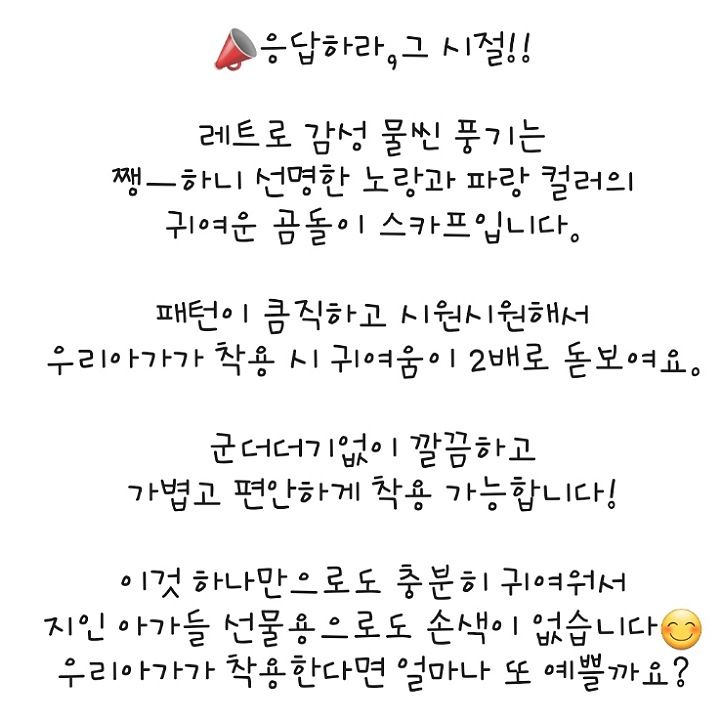 📣응답하라,그 시절!!
레트로 감성 물씬 풍기는
쨍ㅡ하니 선명한 노랑과 파랑 컬러의
귀여운 곰돌이 스카프입니다.
패턴이 큼직하고 시원시원해서
우리아가가 착용 시 귀여움이 2배로 돋보여요.
군더더기없이 깔끔하고
가볍고 편안하게 착용 가능합니다!
이것 하나만으로도 충분히 귀여워서
지인 아가들 선물용으로도 손색이 없습니다😊
우리아가가 착용한다면 얼마나 또 예쁠까요?